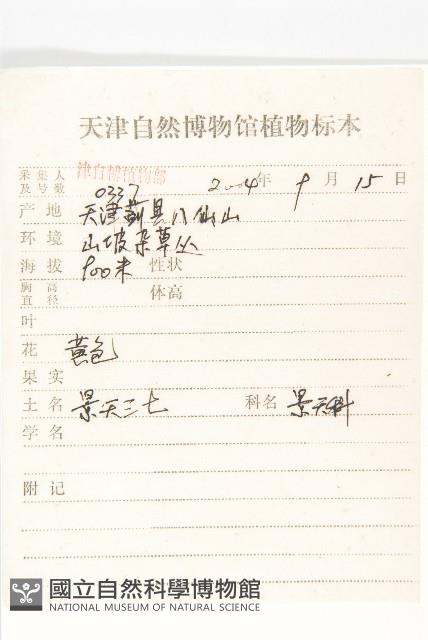 天津自然博物馆植物标本
采集人及号数 津自博植物部 0337 2004年 9月 15日
产地 天津蓟县八仙山
环境 山坡杂草丛
海拔 900米 性状
胸高直径 体高
叶
花 黄色
果实
土名 景天三七 科名 景天科
学名
附记
國立自然科學博物館
NATIONAL MUSEUM OF NATURAL SCIENCE